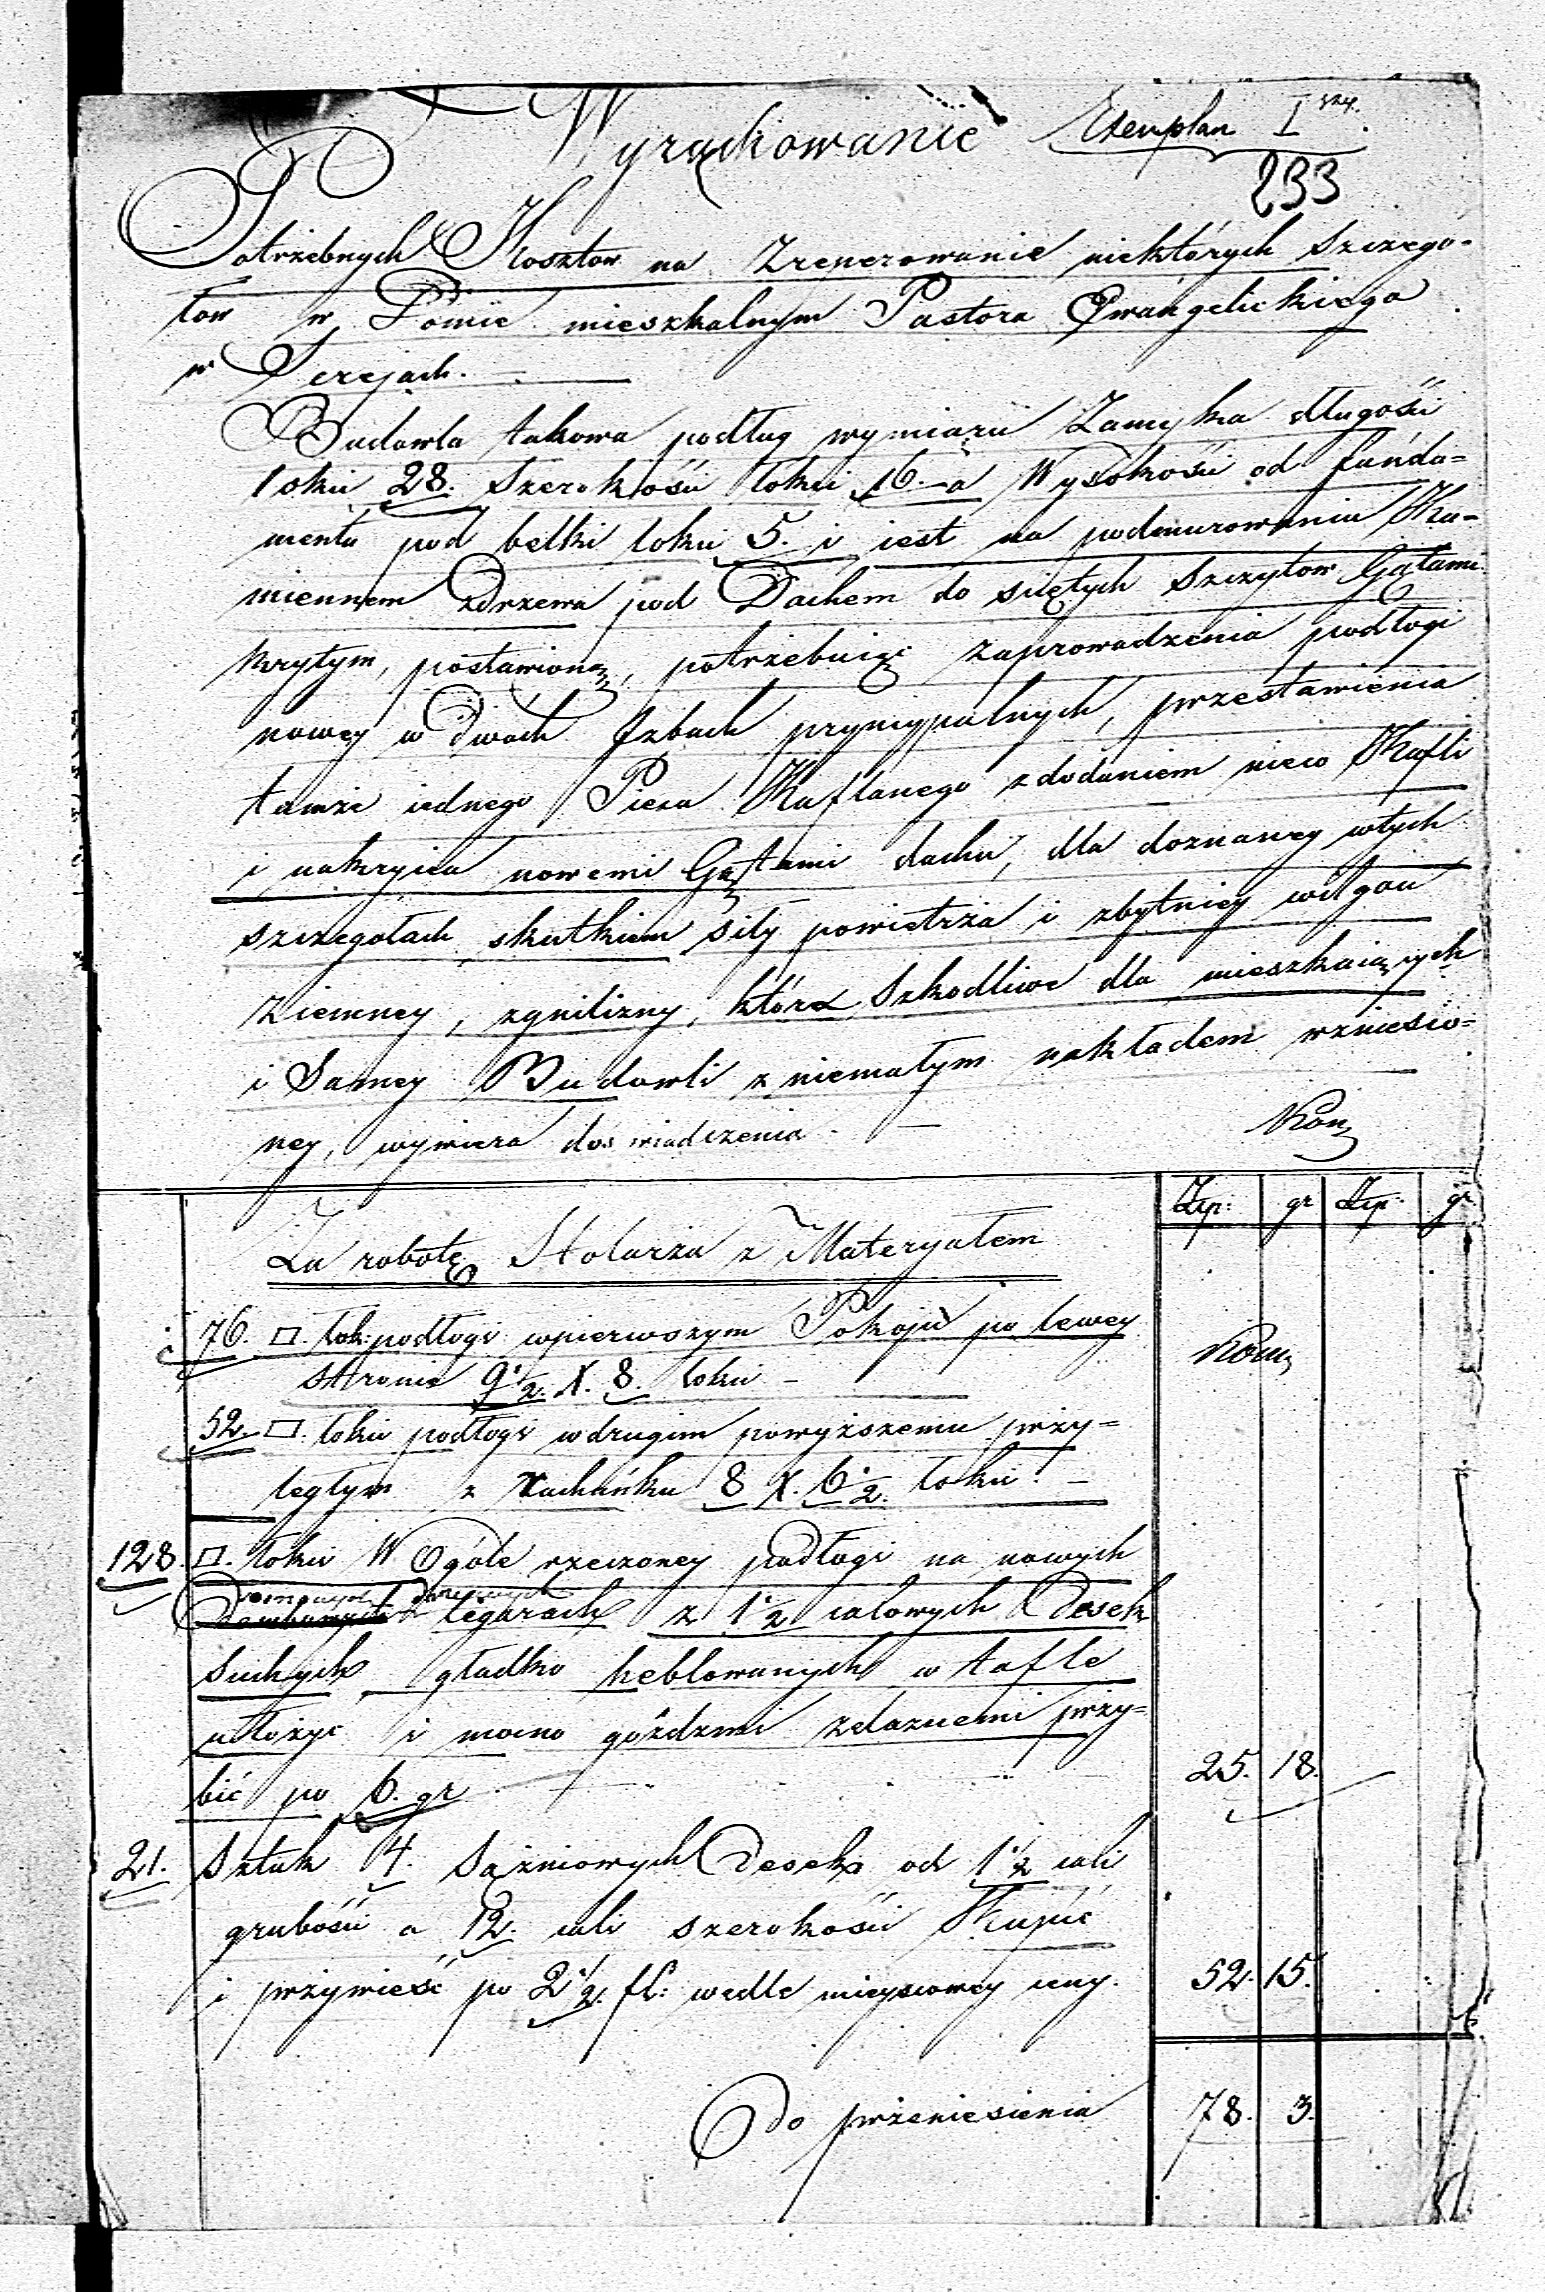 Wyrachowanie
Exemplarz I szy.
233
Potrzebnych Kosztow na Zreperowanie niektórych szczego-
łow w Domie mieszkalnym Pastora Ewangelickiego
w Serejach.
Budowla takowa podług wymiaru Zamyka długości
łokci 28. szerokości łokci 16. a Wysokości od funda-
mentu pod belki łokci 5. i iest na podmurowaniu Ka-
miennem zdrzewa pod Dachem do ściętych Szczytow Gątami
krytym, postawioną, potrzebuiąc zaprowadzenia podłogi
nowey w dwóch Izbach pryncypalnych, przestawienia
tamże iednego Pieca Kaflanego z dodaniem nieco Kafli
i nakrycia nowemi Gątami dachu, dla doznaney wtych
szczegołach skutkiem siły powietrza i zbytniey wilgoci
Ziemney, zgnilizny, która szkodliwe dla mieszkaiących
i Samey Budowli z niemałym nakładem wzniesio-
ney, wywiera doswiadczenia. —
Złp: gr Złp: gr
Za robotę Stolarza z Materyałem
76. □. łok: podłogi wpierwszym Pokoju po lewey
stronie 9 1/2. X. 8. łokci —
52. □. łokci podłogi wdrugim powyższemu przy-
ległym z 8 X. 6 1/2. łokci. —
128. □. łokci W Ogóle rzeczoney podłogi na nowych
legarach z 1 1/2 calowych Desek
suchych, gładko heblowanych w tafle
ułożyć i mocno goździmi żelaznemi przy-
bić po 6. gr 25. 18.
21. Sztuk 4. Sążniowych Desek od 1 1/2 cali
grubości a 12. cali szerokości Kupić
i przywieść po 2 1/2. fl: wedle mieyscowey ceny. 52. 15.
Do przeniesienia 78. 3.